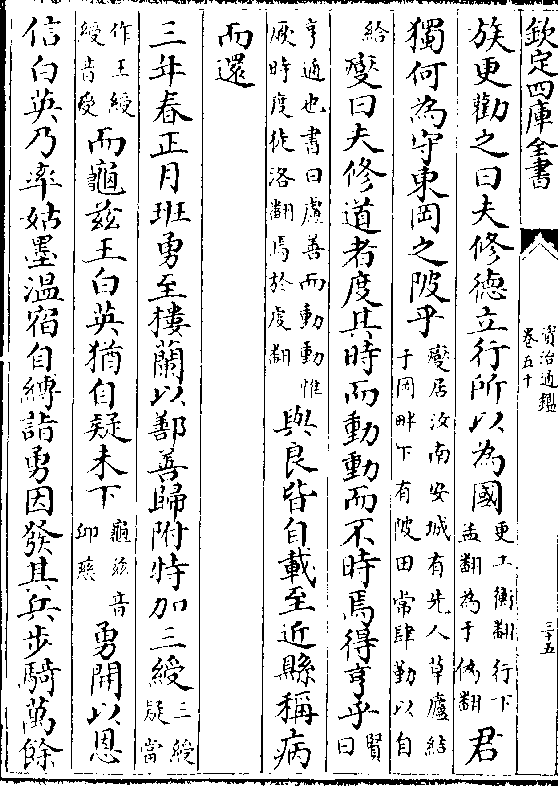 欽定四庫全書
資治通鑑
卷五十
三十五
族更勸之曰夫修德立行所以為國更工衡翻行下孟翻為于偽翻君
獨何為守東岡之陂乎爕居汝南安城有先人草廬結于岡畔下有陂田常肆勤以自
給爕曰夫修道者度其時而動動而不時焉得亨乎賢曰
亨通也書曰慮善而動動惟厥時度徒洛翻焉於虔翻與良皆自載至近縣稱病
而還
三年春正月班勇至樓蘭以鄯善歸附特加三綬三綬疑當
作王綬綬音受而龜兹王白英猶自疑未下龜兹音邱慈勇開以恩
信白英乃率姑墨溫宿自縛詣勇因發其兵步騎萬餘